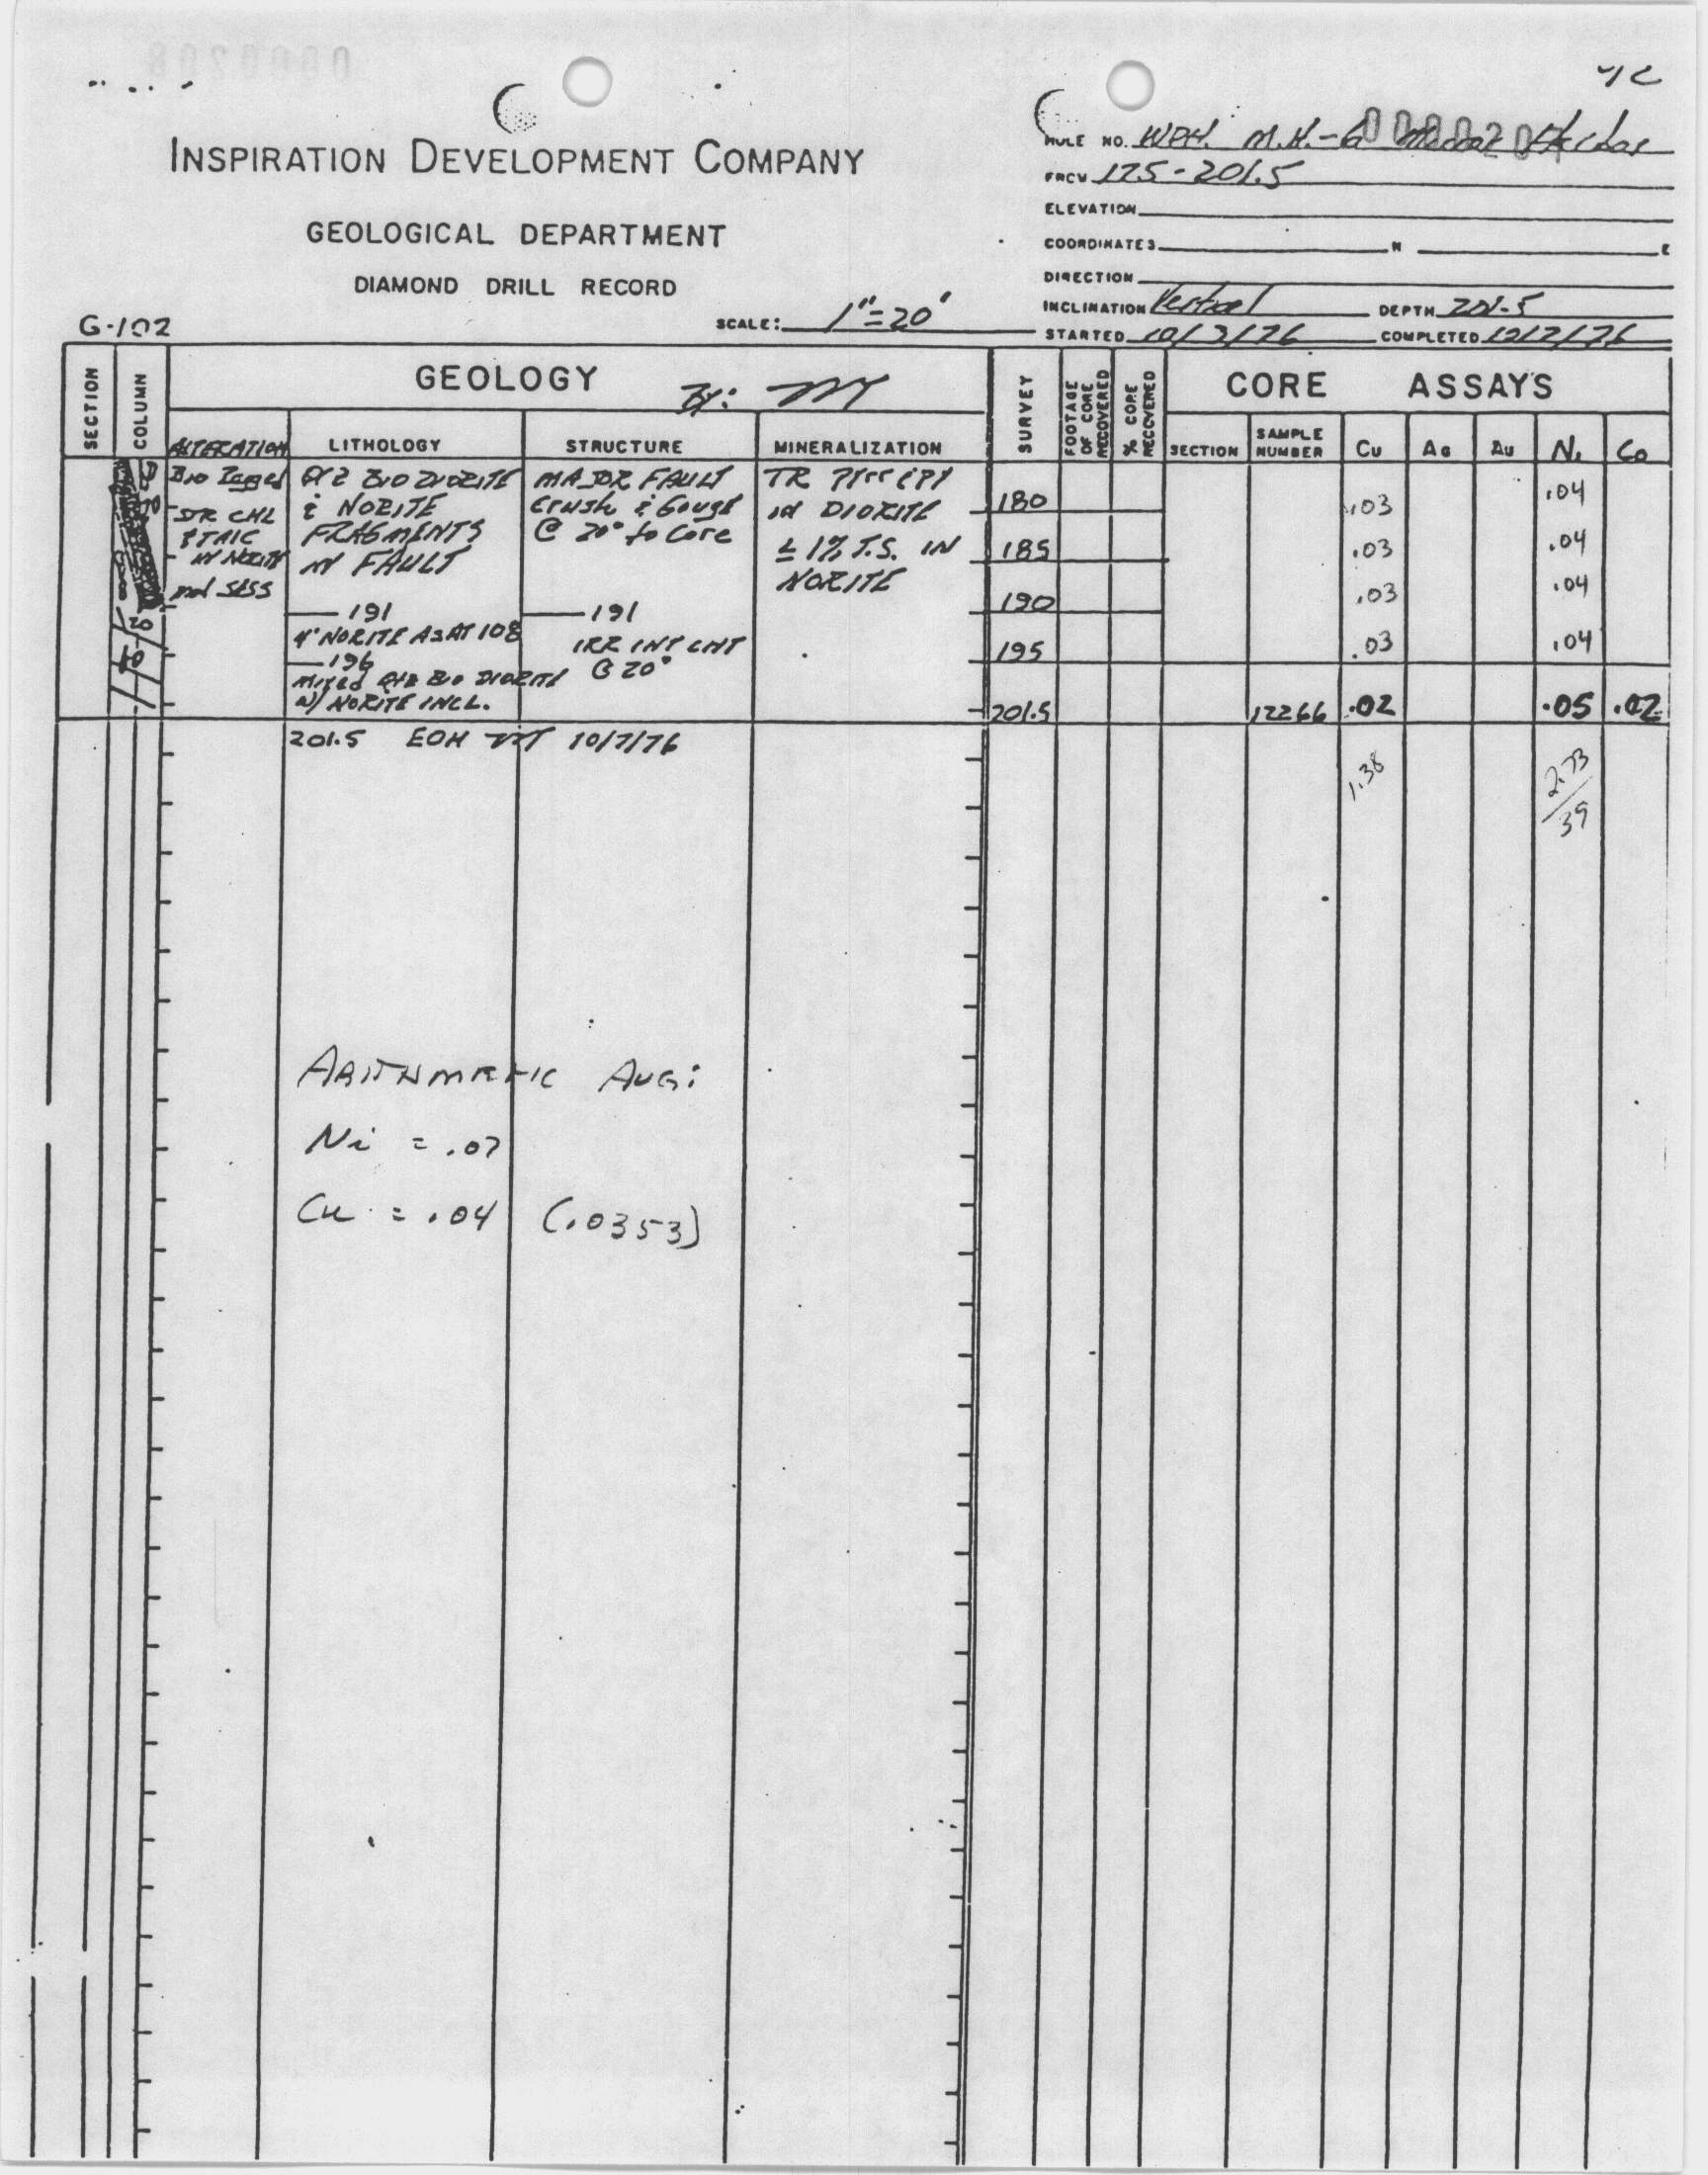 INSPIRATION DEVELOPMENT COMPANY
GEOLOGICAL DEPARTMENT
DIAMOND DRILL RECORD
G-102
SCALE: 1"=20'
HOLE NO. M.H.-6
FROM 175-201.5
ELEVATION
COORDINATES N E
DIRECTION
INCLINATION Vertical DEPTH 201.5
STARTED 10/3/76 COMPLETED
SECTION COLUMN GEOLOGY By: SURVEY FOOTAGE OF CORE RECOVERED % CORE RECOVERED CORE ASSAYS
ALTERATION LITHOLOGY STRUCTURE MINERALIZATION SECTION SAMPLE NUMBER Cu AG AU Ni Co
Bio QTZ BIO DIORITE MAJOR FAULT TR
STR CHL & NORITE Crush & Gouge in DIORITE 180 .03 .04
& TALC FRAGMENTS @ 20° to Core
IN NORITE IN FAULT ± 1% T.S. IN 185 .03 .04
NORITE
191 191 190 .03 .04
4' NORITE AS AT 108 IRR INT CNT
196 @ 20° 195 .03 .04
Mixed QTZ BIO DIORITE
W/ NORITE INCL. 201.5 12266 .02 .05 .02
201.5 EOH 10/7/76
1.38 2.73
39
ARITHMETIC AVG:
Ni = .07
Cu = .04 (.0353)